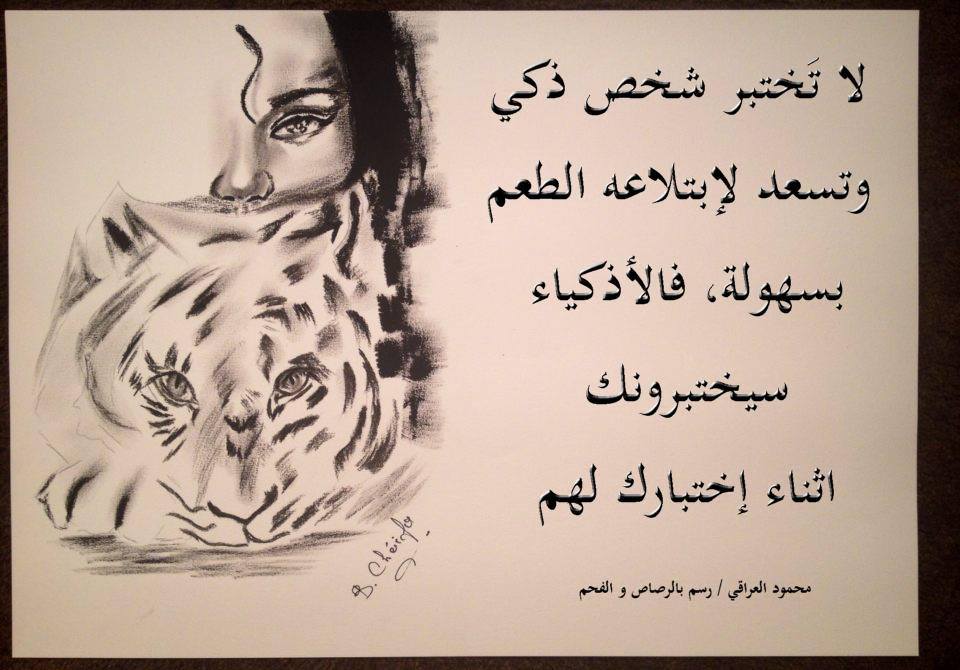 لا تَختبر شخص ذكي
وتسعد لإبتلاعه الطعم
بسهولة، فالأذكياء
سيختبرونك
اثناء إختبارك لهم
محمود العراقي / رسم بالرصاص و الفحم